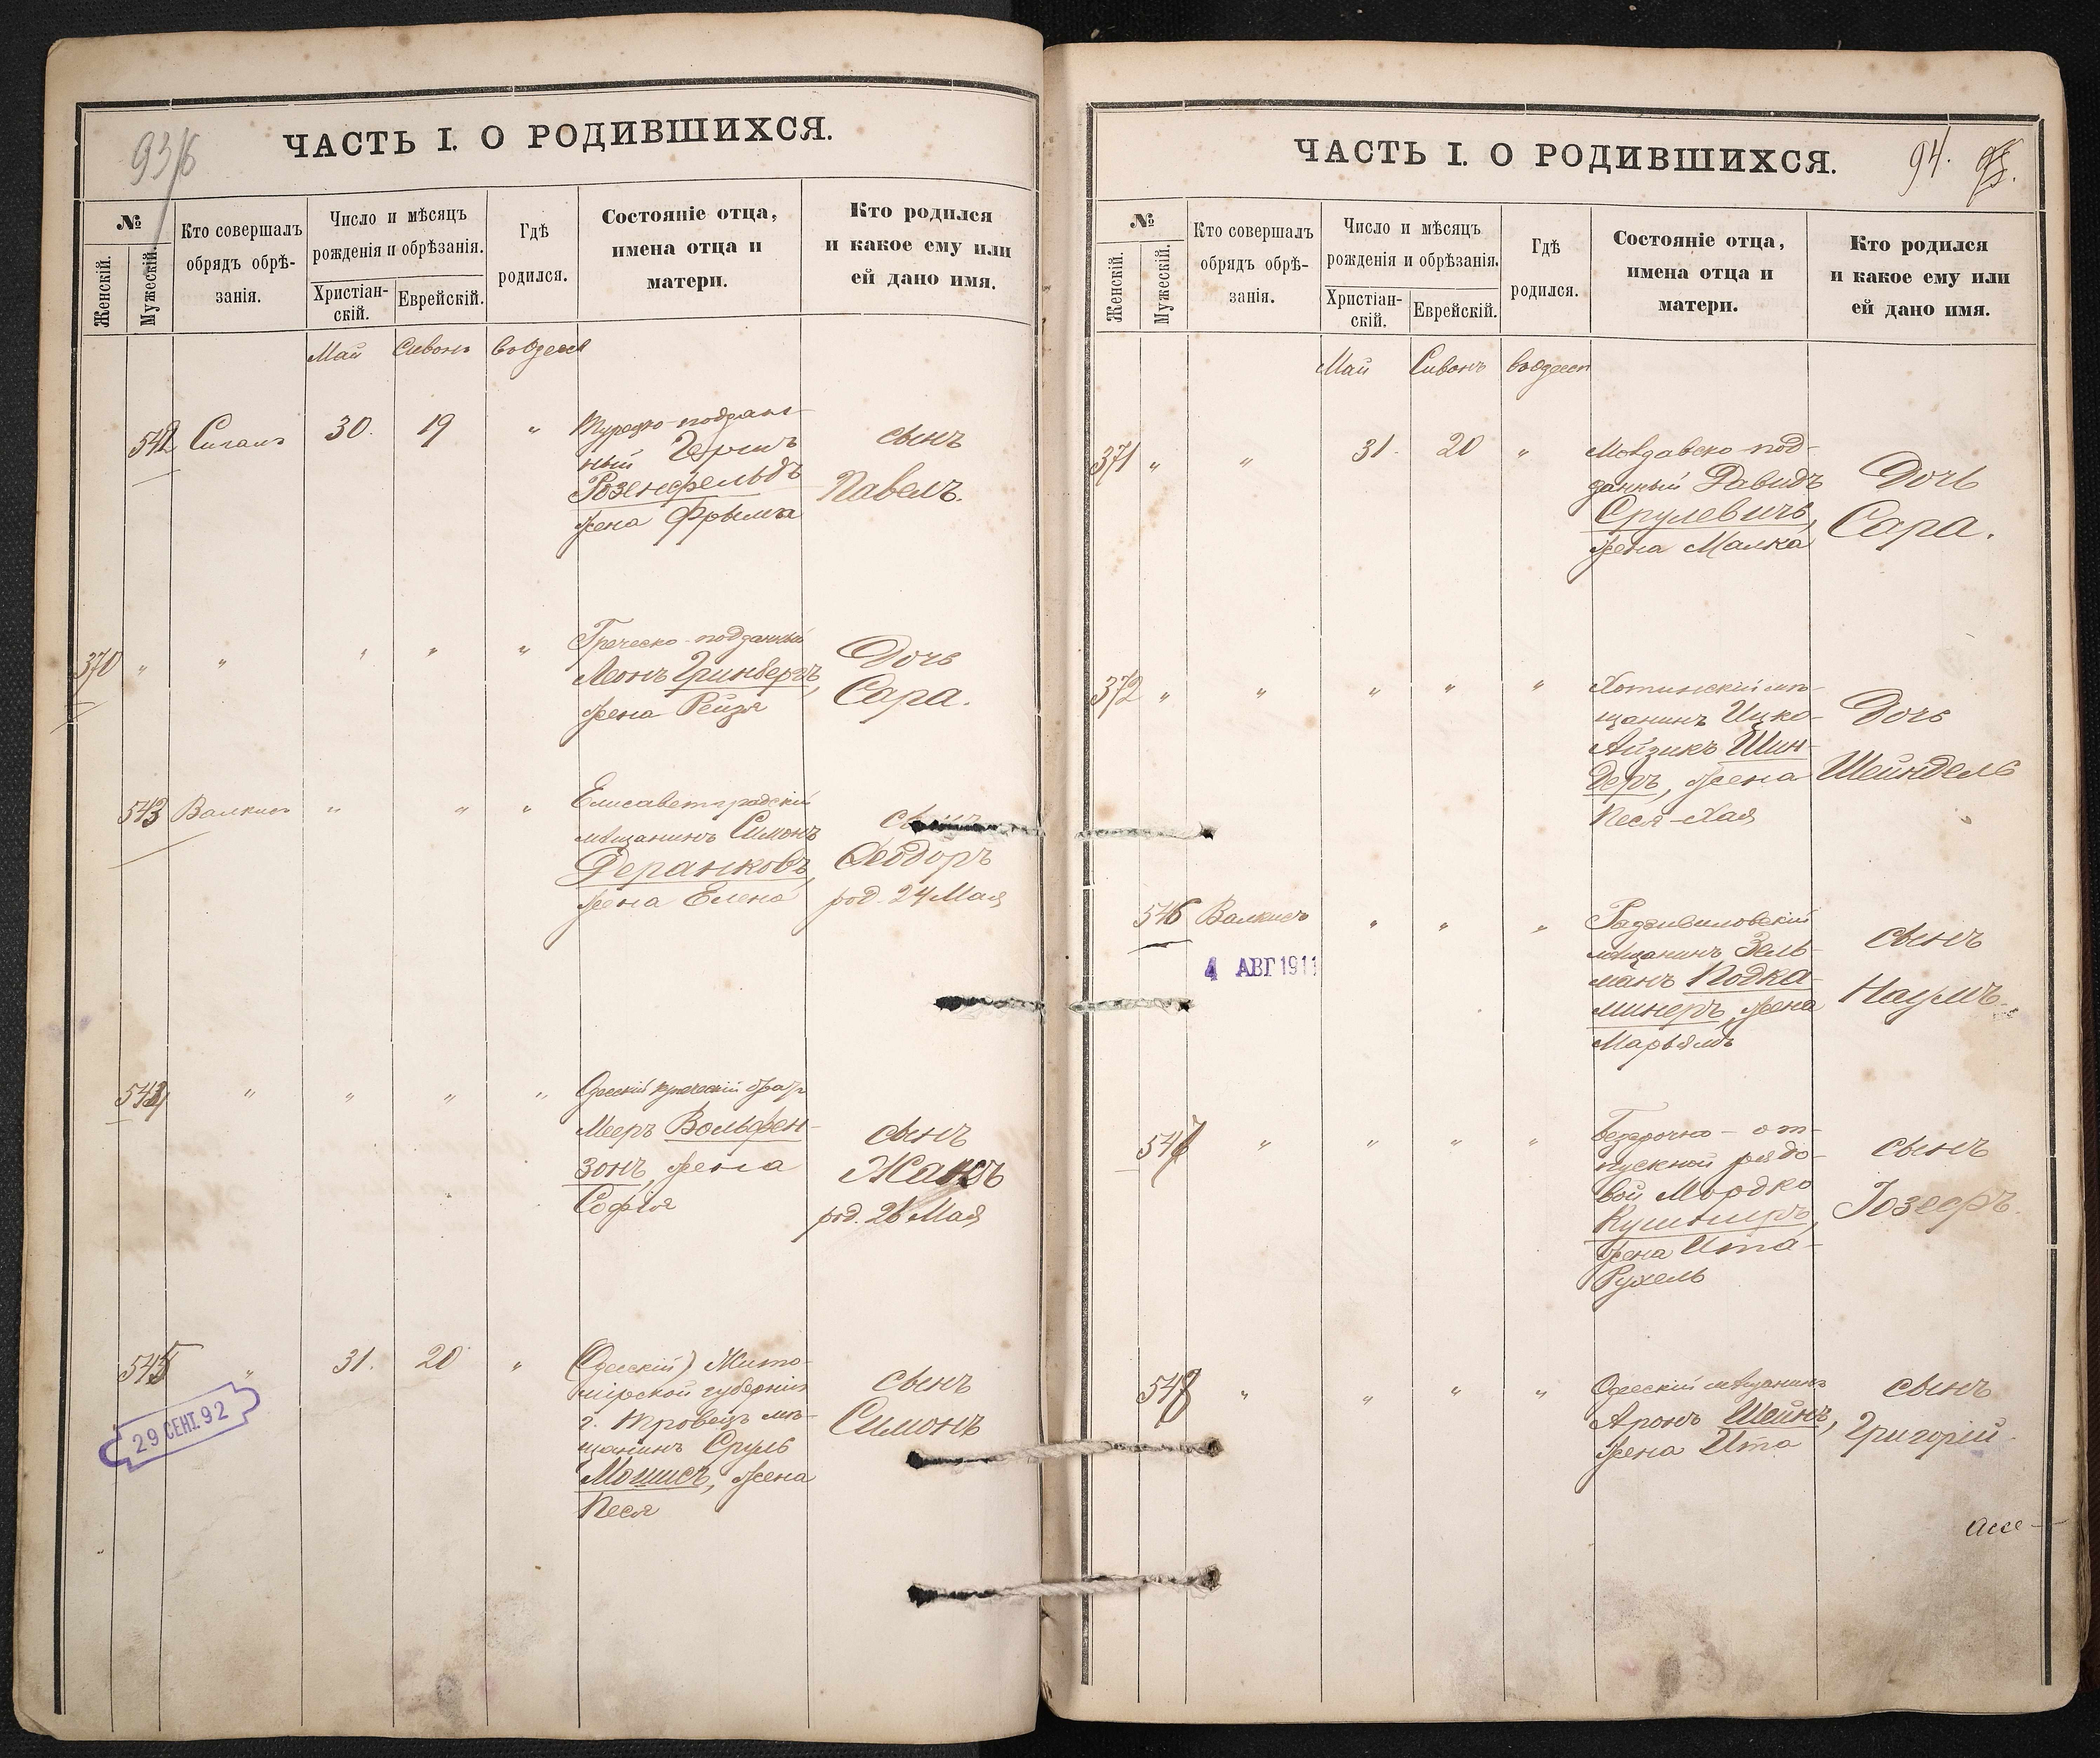 93/б
ЧАСТЬ I. О РОДИВШИХСЯ.
№
Женскій.
Мужескій.
Кто совершалъ
обрядъ обрѣ-
занія.
Число и мѣсяцъ
рожденія и обрѣзанія.
Христіан-
скій.
Еврейскій.
Гдѣ
родился.
Состояніе отца,
имена отца и
матери.
Кто родился
и какое ему или
ей дано имя.
Май Сивонъ въ Одессѣ
542 Сигалъ 30. 19 „
Турецко-поддан-
ный Гершъ
Розенфельдъ
жена Фрыма
сынъ
Павелъ.
370 „ „ „ „ „
Греческо-подданный
Леонъ Гринбергъ,
жена Рейзя
Дочь
Сара.
543 Валкисъ „ „ „
Елисаветградскій
мѣщанинъ Симонъ
Деранковъ,
жена Елена
сынъ
Ѳеодоръ
род. 24 Мая
544 „ „ „ „
Одесскій купеческій братъ
Мееръ Вольфен-
зонъ, жена
Софія
сынъ
Жакъ
род. 26 Мая
545 „ 31. 20 „
(Одесскій) Жито-
мірской губерніи
мѣ-
щанинъ Сруль
Мошисъ, жена
Песя
сынъ
Симонъ
29 СЕНТ. 92
ЧАСТЬ I. О РОДИВШИХСЯ.
94.
№
Женскій.
Мужескій.
Кто совершалъ
обрядъ обрѣ-
занія.
Число и мѣсяцъ
рожденія и обрѣзанія.
Христіан-
скій.
Еврейскій.
Гдѣ
родился.
Состояніе отца,
имена отца и
матери.
Кто родился
и какое ему или
ей дано имя.
Май Сивонъ въ Одессѣ
371 „ „ 31. 20 „
Молдавско-под-
данный Давидъ
Срулевичъ,
жена Малка
Дочь
Сара.
372 „ „ „ „ „
Хотинскій мѣ-
щанинъ Ицко-
Айзикъ Шин-
деръ, жена
Песя-Хая
Дочь
Шейндель
546 Валкисъ „ „ „
4 АВГ 1911
Радзивиловскій
мѣщанинъ Зель-
манъ Подка-
минеръ, жена
Марьямъ
сынъ
Наумъ.
547 „ „ „ „
Безсрочно-от-
пускной рядо-
вой Мордко
Кушниръ,
жена Ита-
Рухель
сынъ
Іозефъ.
548 „ „ „ „
Одесскій мѣщанинъ
Аронъ Шейнъ,
жена Ита
сынъ
Григорій.